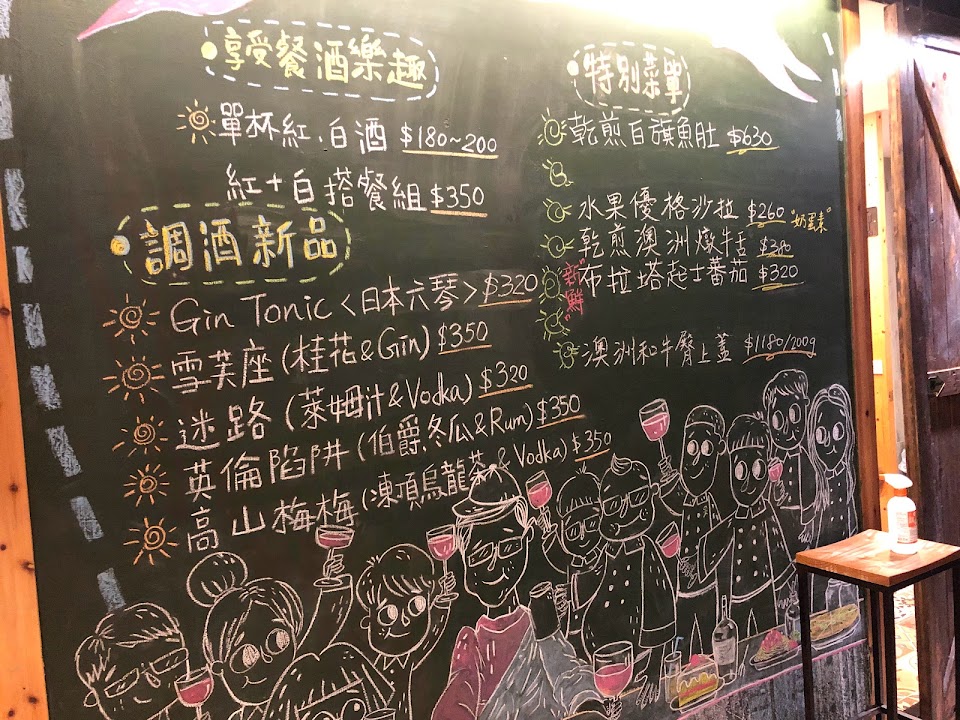 享受餐酒樂趣
單杯紅.白酒 $180~200
紅+白搭餐組 $350
調酒新品
Gin Tonic <日本六琴> $320
雪芙座 (桂花&Gin) $350
迷路 (萊姆汁&Vodka) $320
英倫陷阱 (伯爵.冬瓜&Rum) $350
高山梅梅 (凍頂烏龍茶&Vodka) $350
特別菜單
乾煎白旗魚肚 $630
水果優格沙拉 $260 "奶蛋素"
乾煎澳洲燉牛舌 $380
"新鮮" 布拉塔起士蕃茄 $320
澳洲和牛臀上蓋 $1180/200g